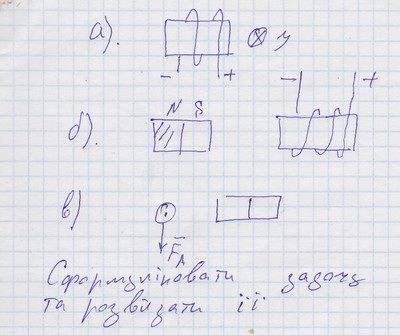 а).
- +
У
б).
N S
- +
в)
F̅А
Сформулювати задачу
та розвязати її